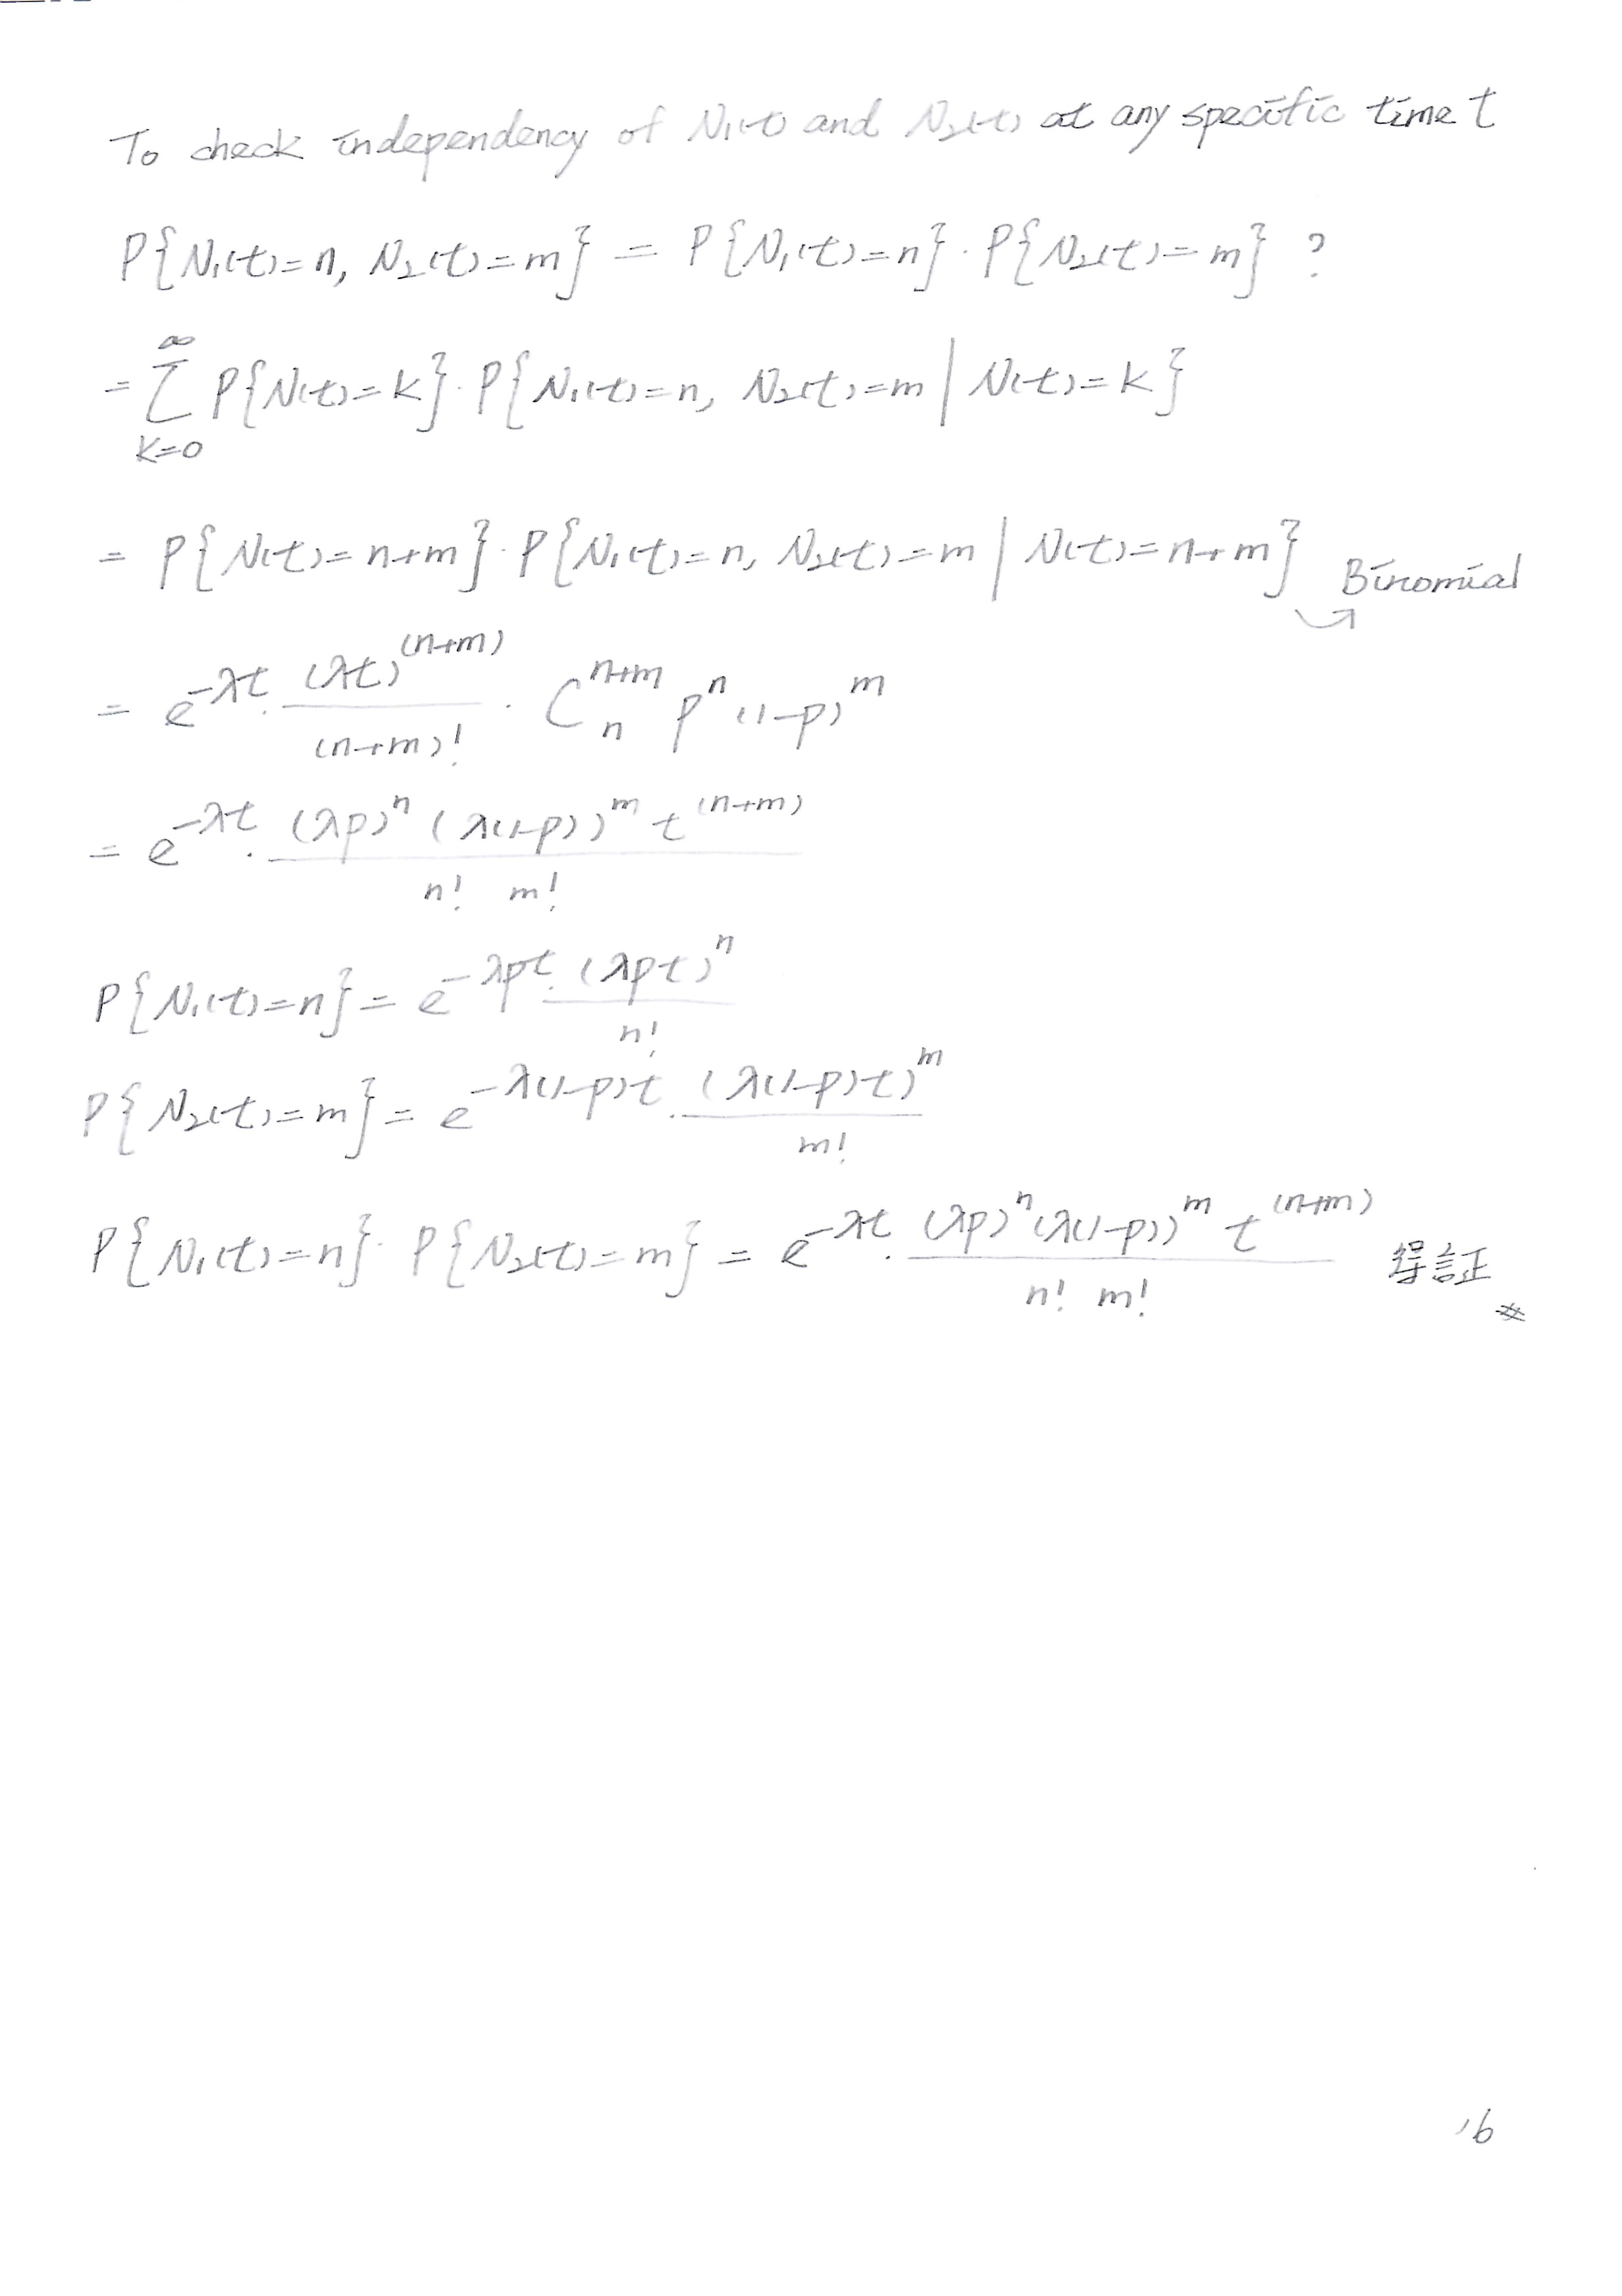 To check independency of N₁(t) and N₂(t) at any specific time t
P{N₁(t)=n, N₂(t)=m} = P{N₁(t)=n}·P{N₂(t)=m} ?
= ∑_{k=0}^{∞} P{N(t)=k}·P{N₁(t)=n, N₂(t)=m | N(t)=k}
= P{N(t)=n+m}·P{N₁(t)=n, N₂(t)=m | N(t)=n+m} ⤷ Binomial
= e^{-λt}·\frac{(λt)^{(n+m)}}{(n+m)!}·C_n^{n+m} p^n (1-p)^m
= e^{-λt}·\frac{(λp)^n (λ(1-p))^m t^{(n+m)}}{n! m!}
P{N₁(t)=n} = e^{-λpt}·\frac{(λpt)^n}{n!}
P{N₂(t)=m} = e^{-λ(1-p)t}·\frac{(λ(1-p)t)^m}{m!}
P{N₁(t)=n}·P{N₂(t)=m} = e^{-λt}·\frac{(λp)^n (λ(1-p))^m t^{(n+m)}}{n! m!} 得証 #
16